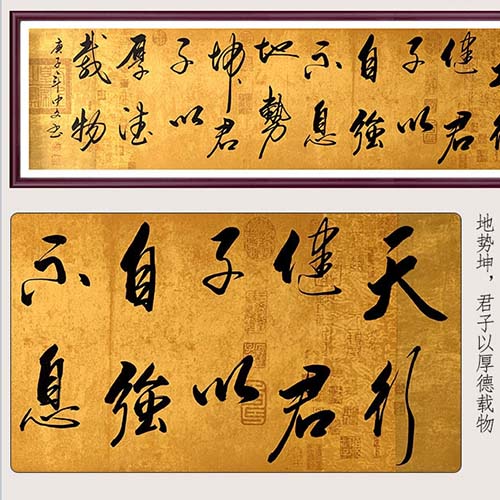 健君
子以
自強
不息
地勢
坤君
子以
厚德
載物
庚子年中文书
天行
健君
子以
自強
不息
地势坤，君子以厚德载物